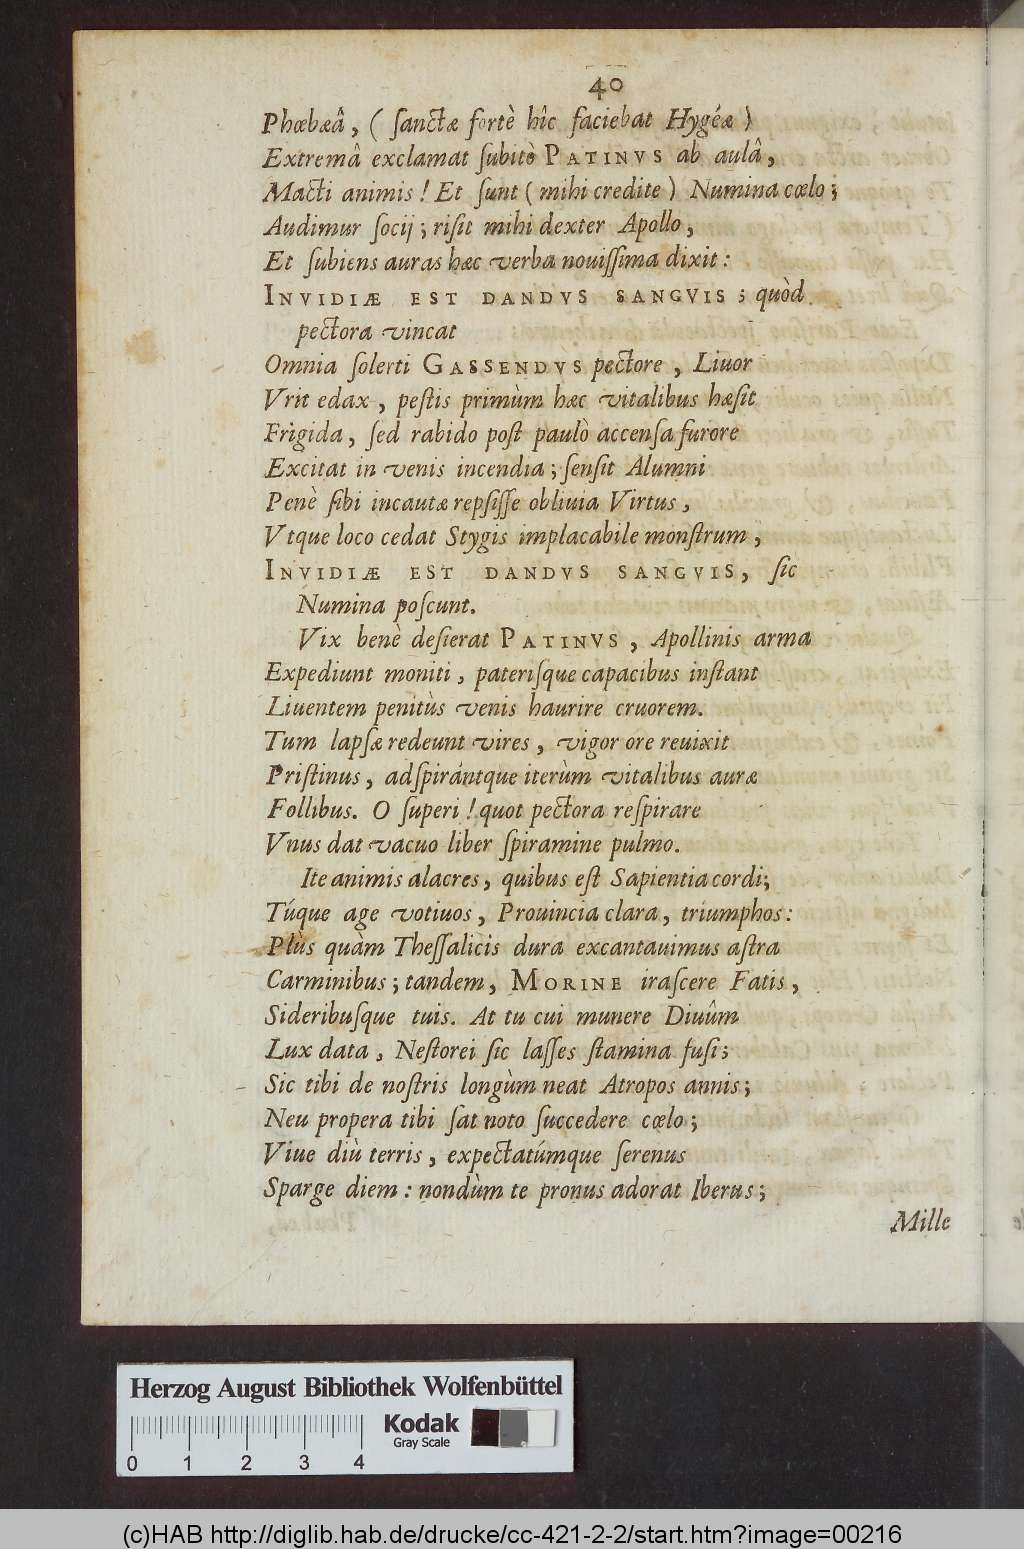 40
Phœbæâ, ( ſanctæ fortè hîc faciebat Hygéæ )
Extremâ exclamat ſubitò PATINVS ab aulâ,
Macti animis ! Et ſunt ( mihi credite ) Numina cœlo ;
Audimur ſocij ; riſit mihi dexter Apollo,
Et ſubiens auras hæc verba nouiſſima dixit :
INVIDIÆ EST DANDVS SANGVIS ; quòd
pectora vincat
Omnia ſolerti GASSENDVS pectore, Liuor
Vrit edax, peſtis primùm hæc vitalibus hæſit
Frigida, ſed rabido poſt paulò accenſa furore
Excitat in venis incendia ; ſenſit Alumni
Penè ſibi incautæ repſiſſe obliuia Virtus,
Vtque loco cedat Stygis implacabile monſtrum,
INVIDIÆ EST DANDVS SANGVIS, ſic
Numina poſcunt.
Vix benè deſierat PATINVS, Apollinis arma
Expediunt moniti, pateriſque capacibus inſtant
Liuentem penitùs venis haurire cruorem.
Tum lapſæ redeunt vires, vigor ore reuixit
Priſtinus, adſpirántque iterùm vitalibus auræ
Follibus. O ſuperi ! quot pectora reſpirare
Vnus dat vacuo liber ſpiramine pulmo.
Ite animis alacres, quibus eſt Sapientia cordi;
Túque age votiuos, Prouincia clara, triumphos :
Plùs quàm Theſſalicis dura excantauimus aſtra
Carminibus ; tandem, MORINE iraſcere Fatis,
Sideribuſque tuis. At tu cui munere Diuûm
Lux data, Neſtorei ſic laſſes ſtamina fuſi ;
Sic tibi de noſtris longùm neat Atropos annis ;
Neu propera tibi ſat noto ſuccedere cœlo ;
Viue diù terris, expectatúmque ſerenus
Sparge diem : nondùm te pronus adorat Iberus ;
Mille
Herzog August Bibliothek Wolfenbüttel
Kodak
Gray Scale
0 1 2 3 4
(c)HAB http://diglib.hab.de/drucke/cc-421-2-2/start.htm?image=00216